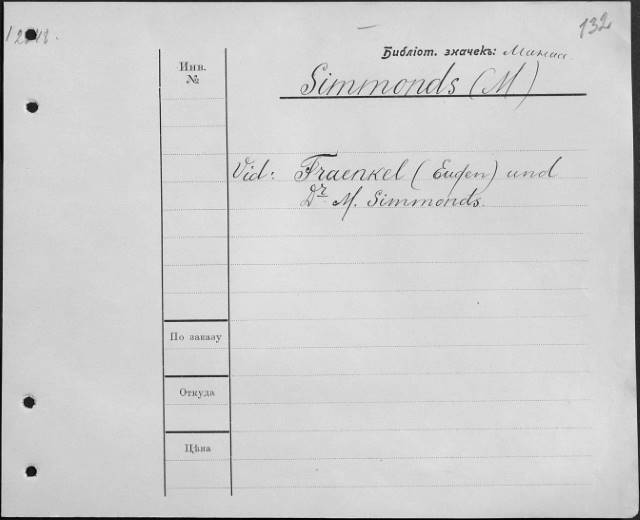 132
Библіот. значекъ:
Инв.
№
Simmonds (M)
Vid: Fraenkel (Eugen) und
Dr M. Simmonds.
По заказу
Откуда
Цѣна